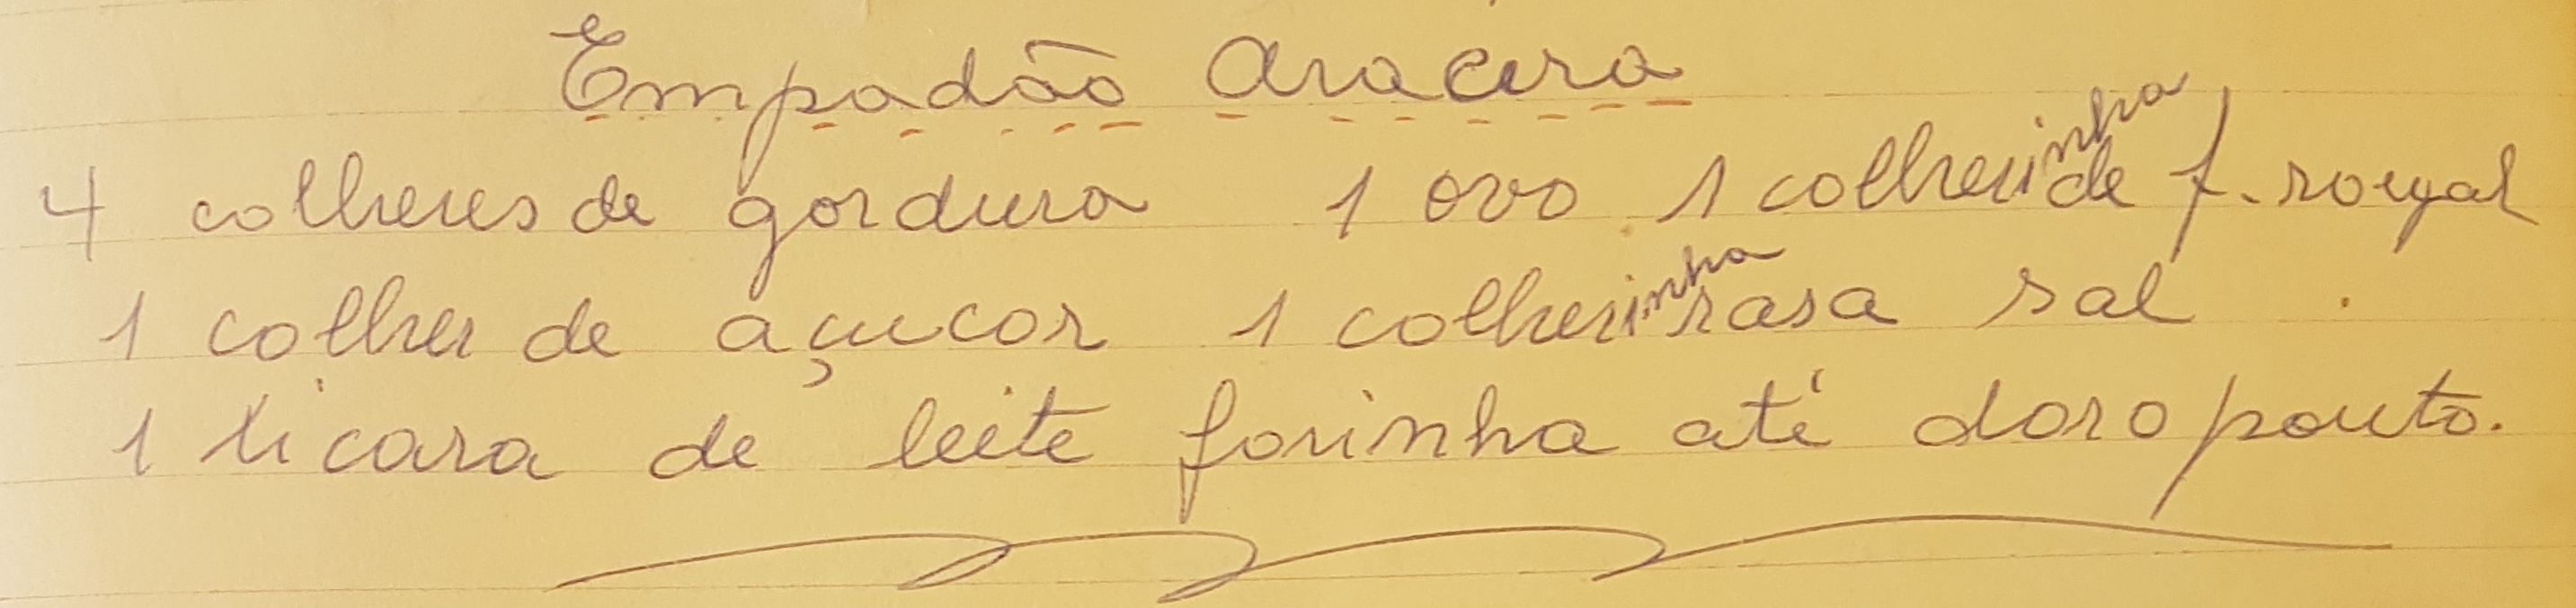 Empadão Aracera
4 colheres de gordura 1 ovo 1 colherinha de f. royal
1 colher de açucar 1 colherinha rasa sal.
1 ticara de leite farinha até dar o ponto.